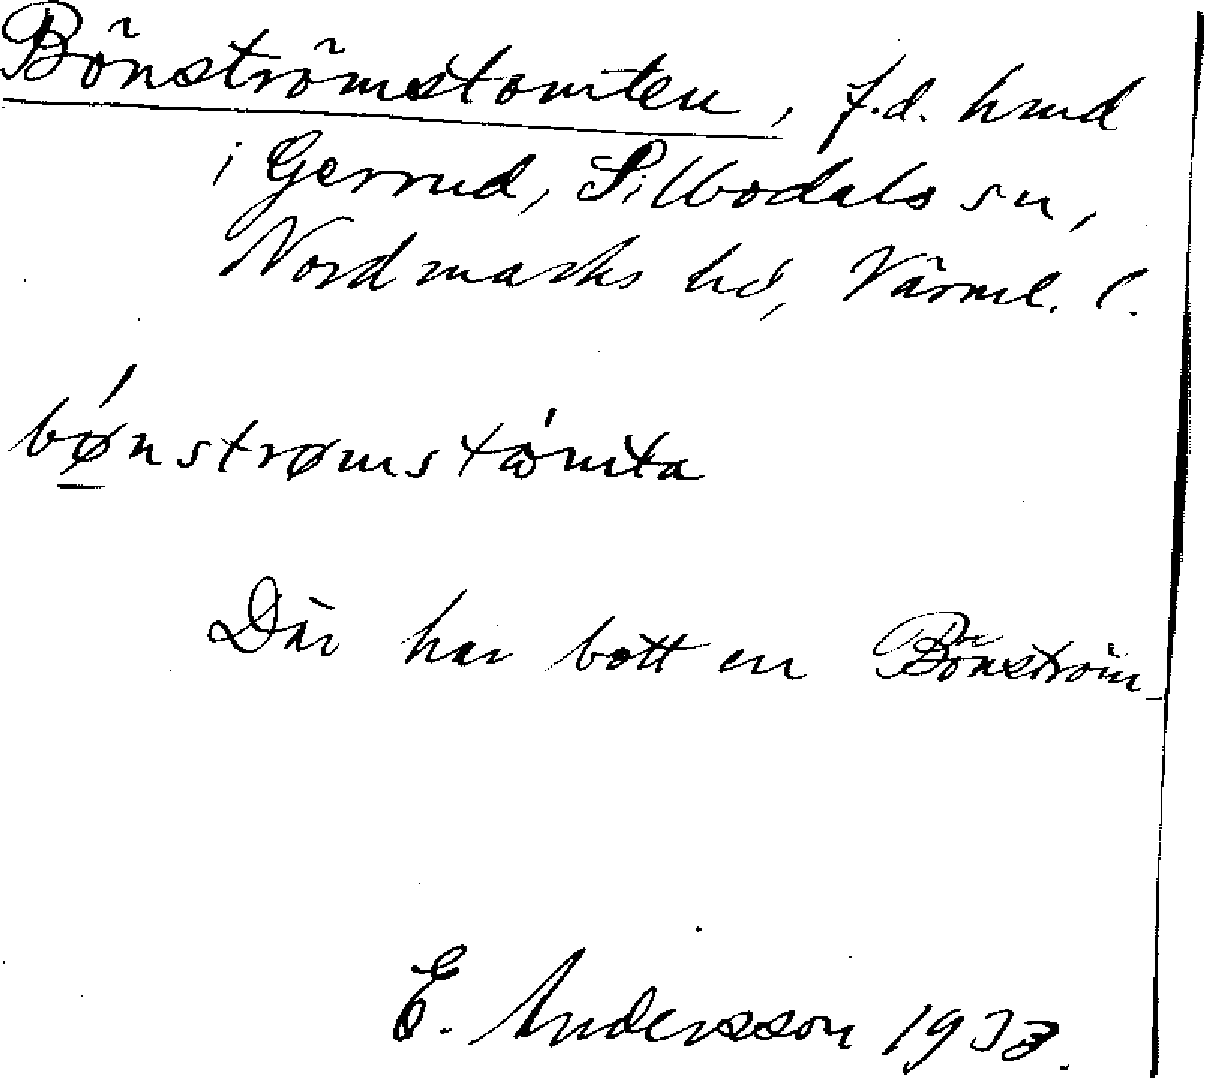 Bönströmstomten, f.d. hmd
i Gerrud, Silbodals sn,
Nordmarks hd, Värml. l.
bǿnstrømstǻmta
Där har bott en Bönström
E. Andersson 1933.